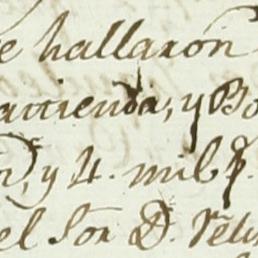 e hallaron
acienda, y Bo
n, y 4. mil p.
el Sor D. Feli